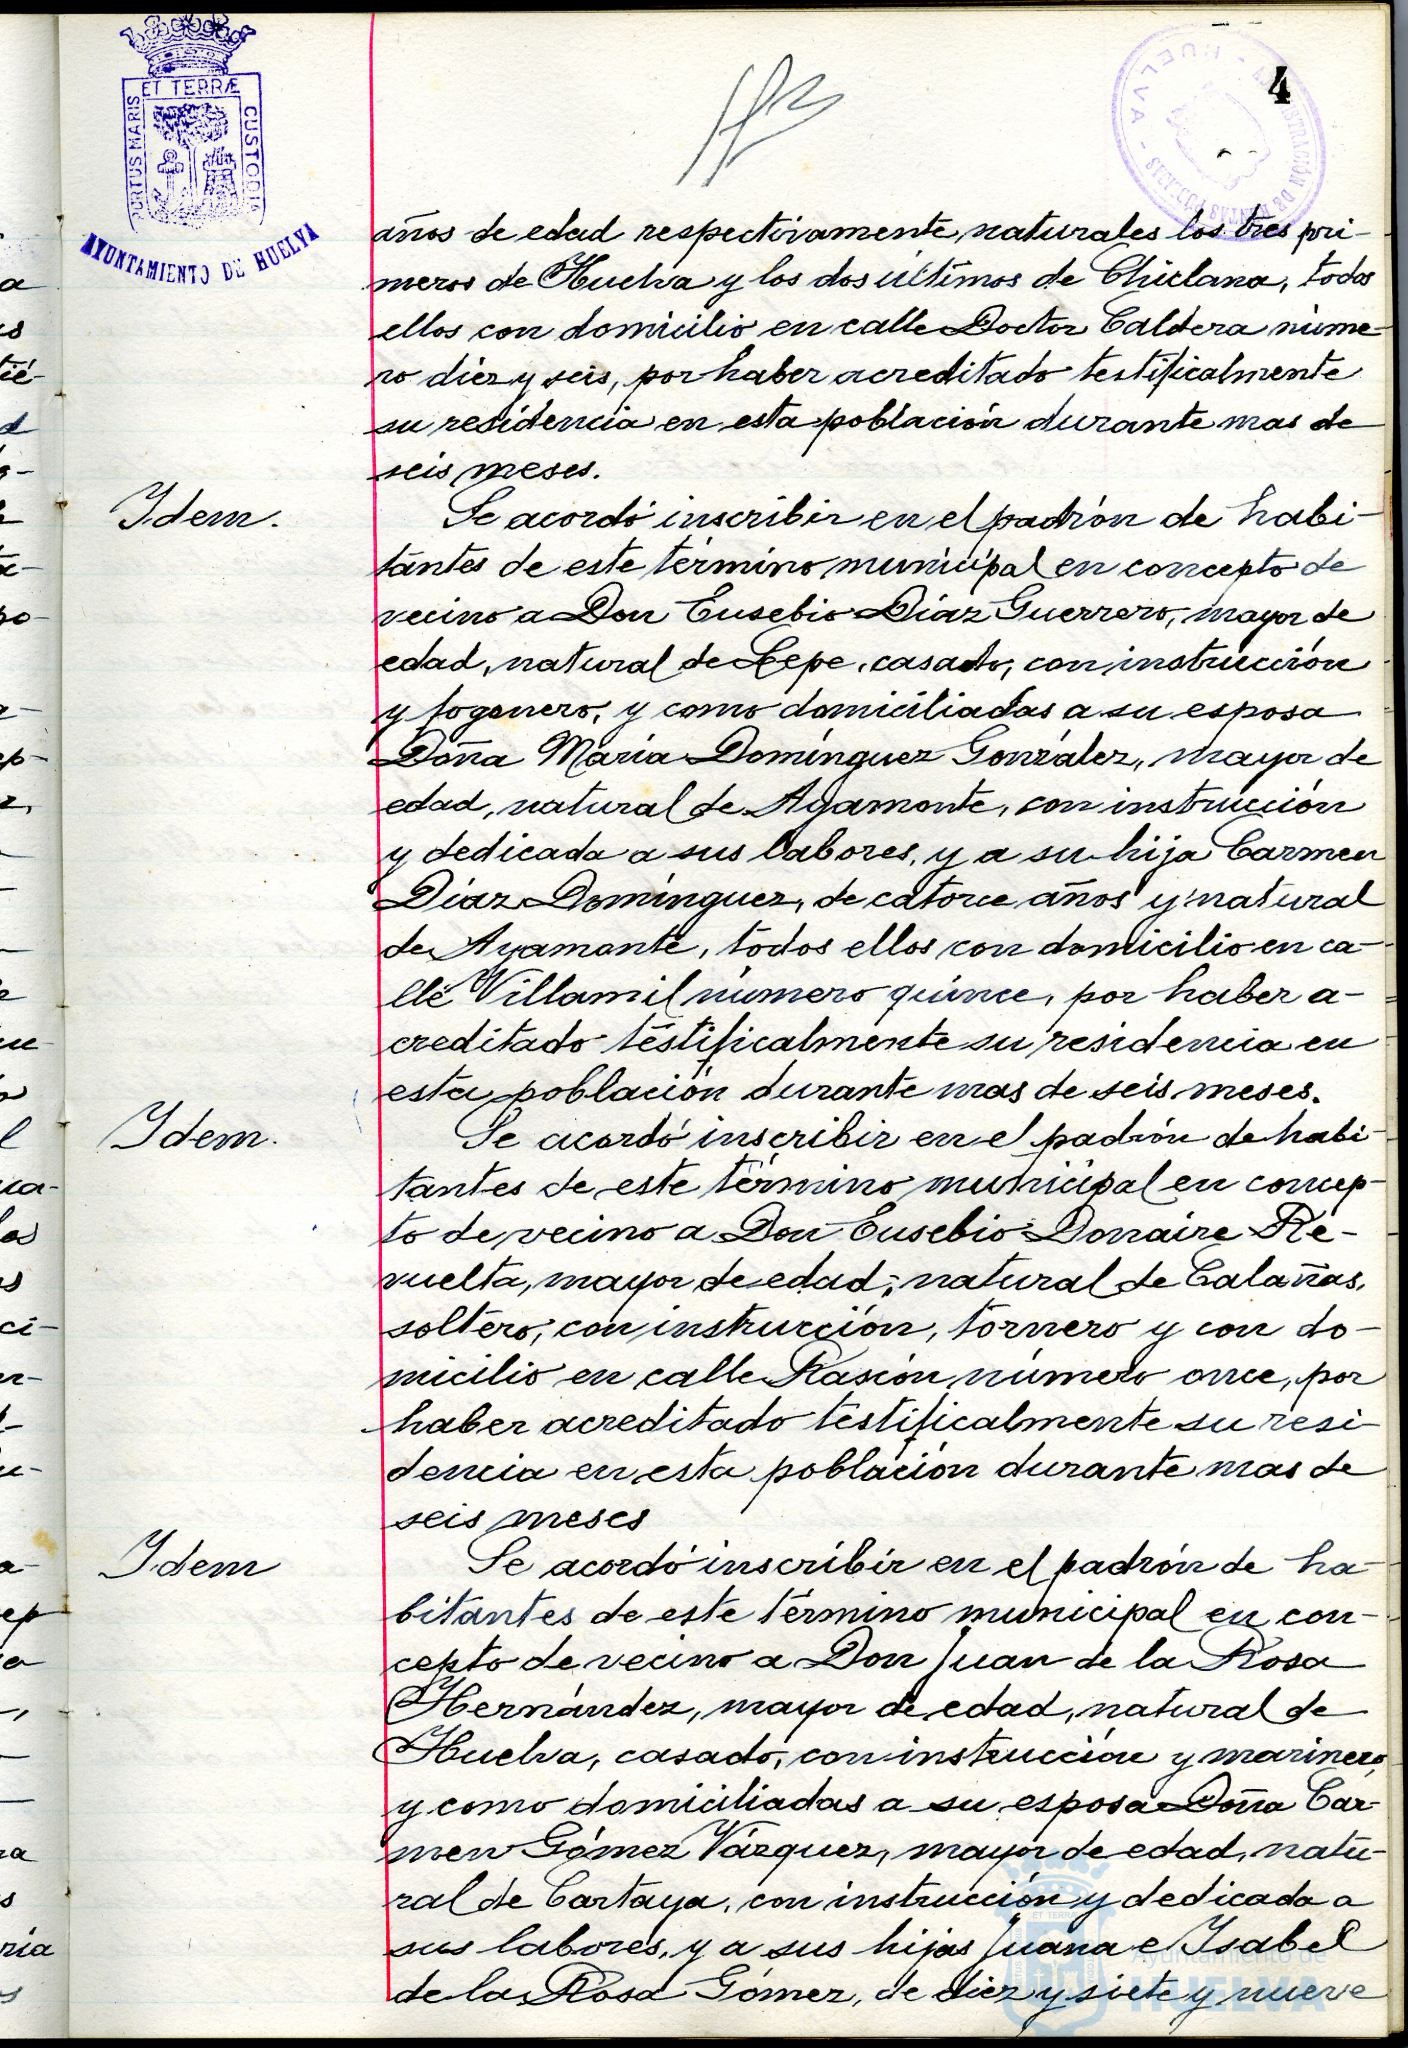 ET TERRÆ
PORTUS MARIS
CUSTODIA
AYUNTAMIENTO DE HUELVA
HUELVA
4
años de edad respectivamente, naturales los tres pri-
meros de Huelva y los dos últimos de Chiclana, todos
ellos con domicilio en calle Doctor Caldera núme-
ro diez y seis, por haber acreditado testificalmente
su residencia en esta población durante mas de
seis meses.
Idem.
Se acordó inscribir en el padrón de habi-
tantes de este término municipal en concepto de
vecino a Don Eusebio Díaz Guerrero, mayor de
edad, natural de Lepe, casado, con instrucción
y fogonero, y como domiciliadas a su esposa
Doña María Domínguez González, mayor de
edad, natural de Ayamonte, con instrucción
y dedicada a sus labores, y a su hija Carmen
Díaz Domínguez, de catorce años y natural
de Ayamonte, todos ellos con domicilio en ca-
lle Villamil número quince, por haber a-
creditado testificalmente su residencia en
esta población durante mas de seis meses.
Idem.
Se acordó inscribir en el padrón de habi-
tantes de este término municipal en concep-
to de vecino a Don Eusebio Donaire Re-
vuelta, mayor de edad, natural de Calañas,
soltero, con instrucción, tornero y con do-
micilio en calle Rascón número once, por
haber acreditado testificalmente su resi-
dencia en esta población durante mas de
seis meses
Idem
Se acordó inscribir en el padrón de ha-
bitantes de este término municipal en con-
cepto de vecino a Don Juan de la Rosa
Hernández, mayor de edad, natural de
Huelva, casado, con instrucción y marinero,
y como domiciliadas a su esposa Doña Car-
men Gómez Vázquez, mayor de edad, natu-
ral de Cartaya, con instrucción y dedicada a
sus labores, y a sus hijas Juana e Isabel
de la Rosa Gómez, de diez y siete y nueve
Ayuntamiento de
HUELVA